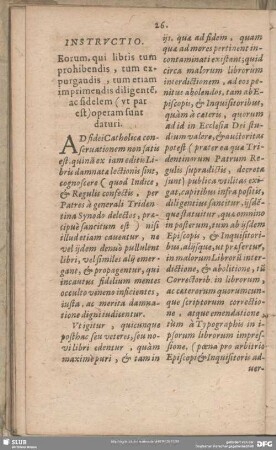 26.
INSTRVCTIO.
Eorum, qui libris tum
prohibendis, tum ex-
purgandis, tum etiam
imprimendis diligentē,
ac fidelem (vt par
est) operam sunt
daturi.
AD fidei Catholicæ con-
seruationem non satis
est, quinā ex iam editis Li-
bris damnatæ lectionis sint,
cognoscere (quod Indice
& Regulis confectis, per
Patres à generali Triden-
tina Synodo delectos, præ-
cipuè sancitum est) nisi
illud etiam caueatur, ne
vel ijdem denuò pullulent
libri, vel similes alij emer-
gant, & propagentur, qui
incautas fidelium mentes
occulto veneno inficientes,
iusta, ac merita damna-
tione digni iudicentur.
Vt igitur, quicunque
posthac seu veteres, seu no-
vi libri edentur, quàm
maximè puri, & tam in
ijs, quæ ad fidem, quam
quæ ad mores pertinent in-
contaminati existent; quid
circa malorum librorum
interdictionem, ac eos pe-
nitus abolendos, tam ab E-
piscopis, & Inquisitoribus,
quàm à cæteris, quorum
ad id in Ecclesia Dei stu-
dum valere, & auctoritas
potest (præter ea quæ Tri-
dentinorum Patrum Re-
gulis supradictis, decreta
sunt) publica vtilitas exi-
gat, capitibus infra positis,
diligentius sancitur, ijsdē-
que statuitur, quæ omnino
in posterum, tum ab ijsdem
Episcopis, & Inquisitori-
bus, alijsque, vt præfertur,
in malorum Librorū inter-
dictione, & abolitione, tū
Correctorib. in librorum,
ac cæterorum quarumcun-
que scriptorum correctio-
ne, atque emendatione
tum à Typographis in i-
psorum librorum impres-
sione, (pœna pro arbitrio
Episcopi & Inquisitoris ad-
uer-
SLUB
DFG